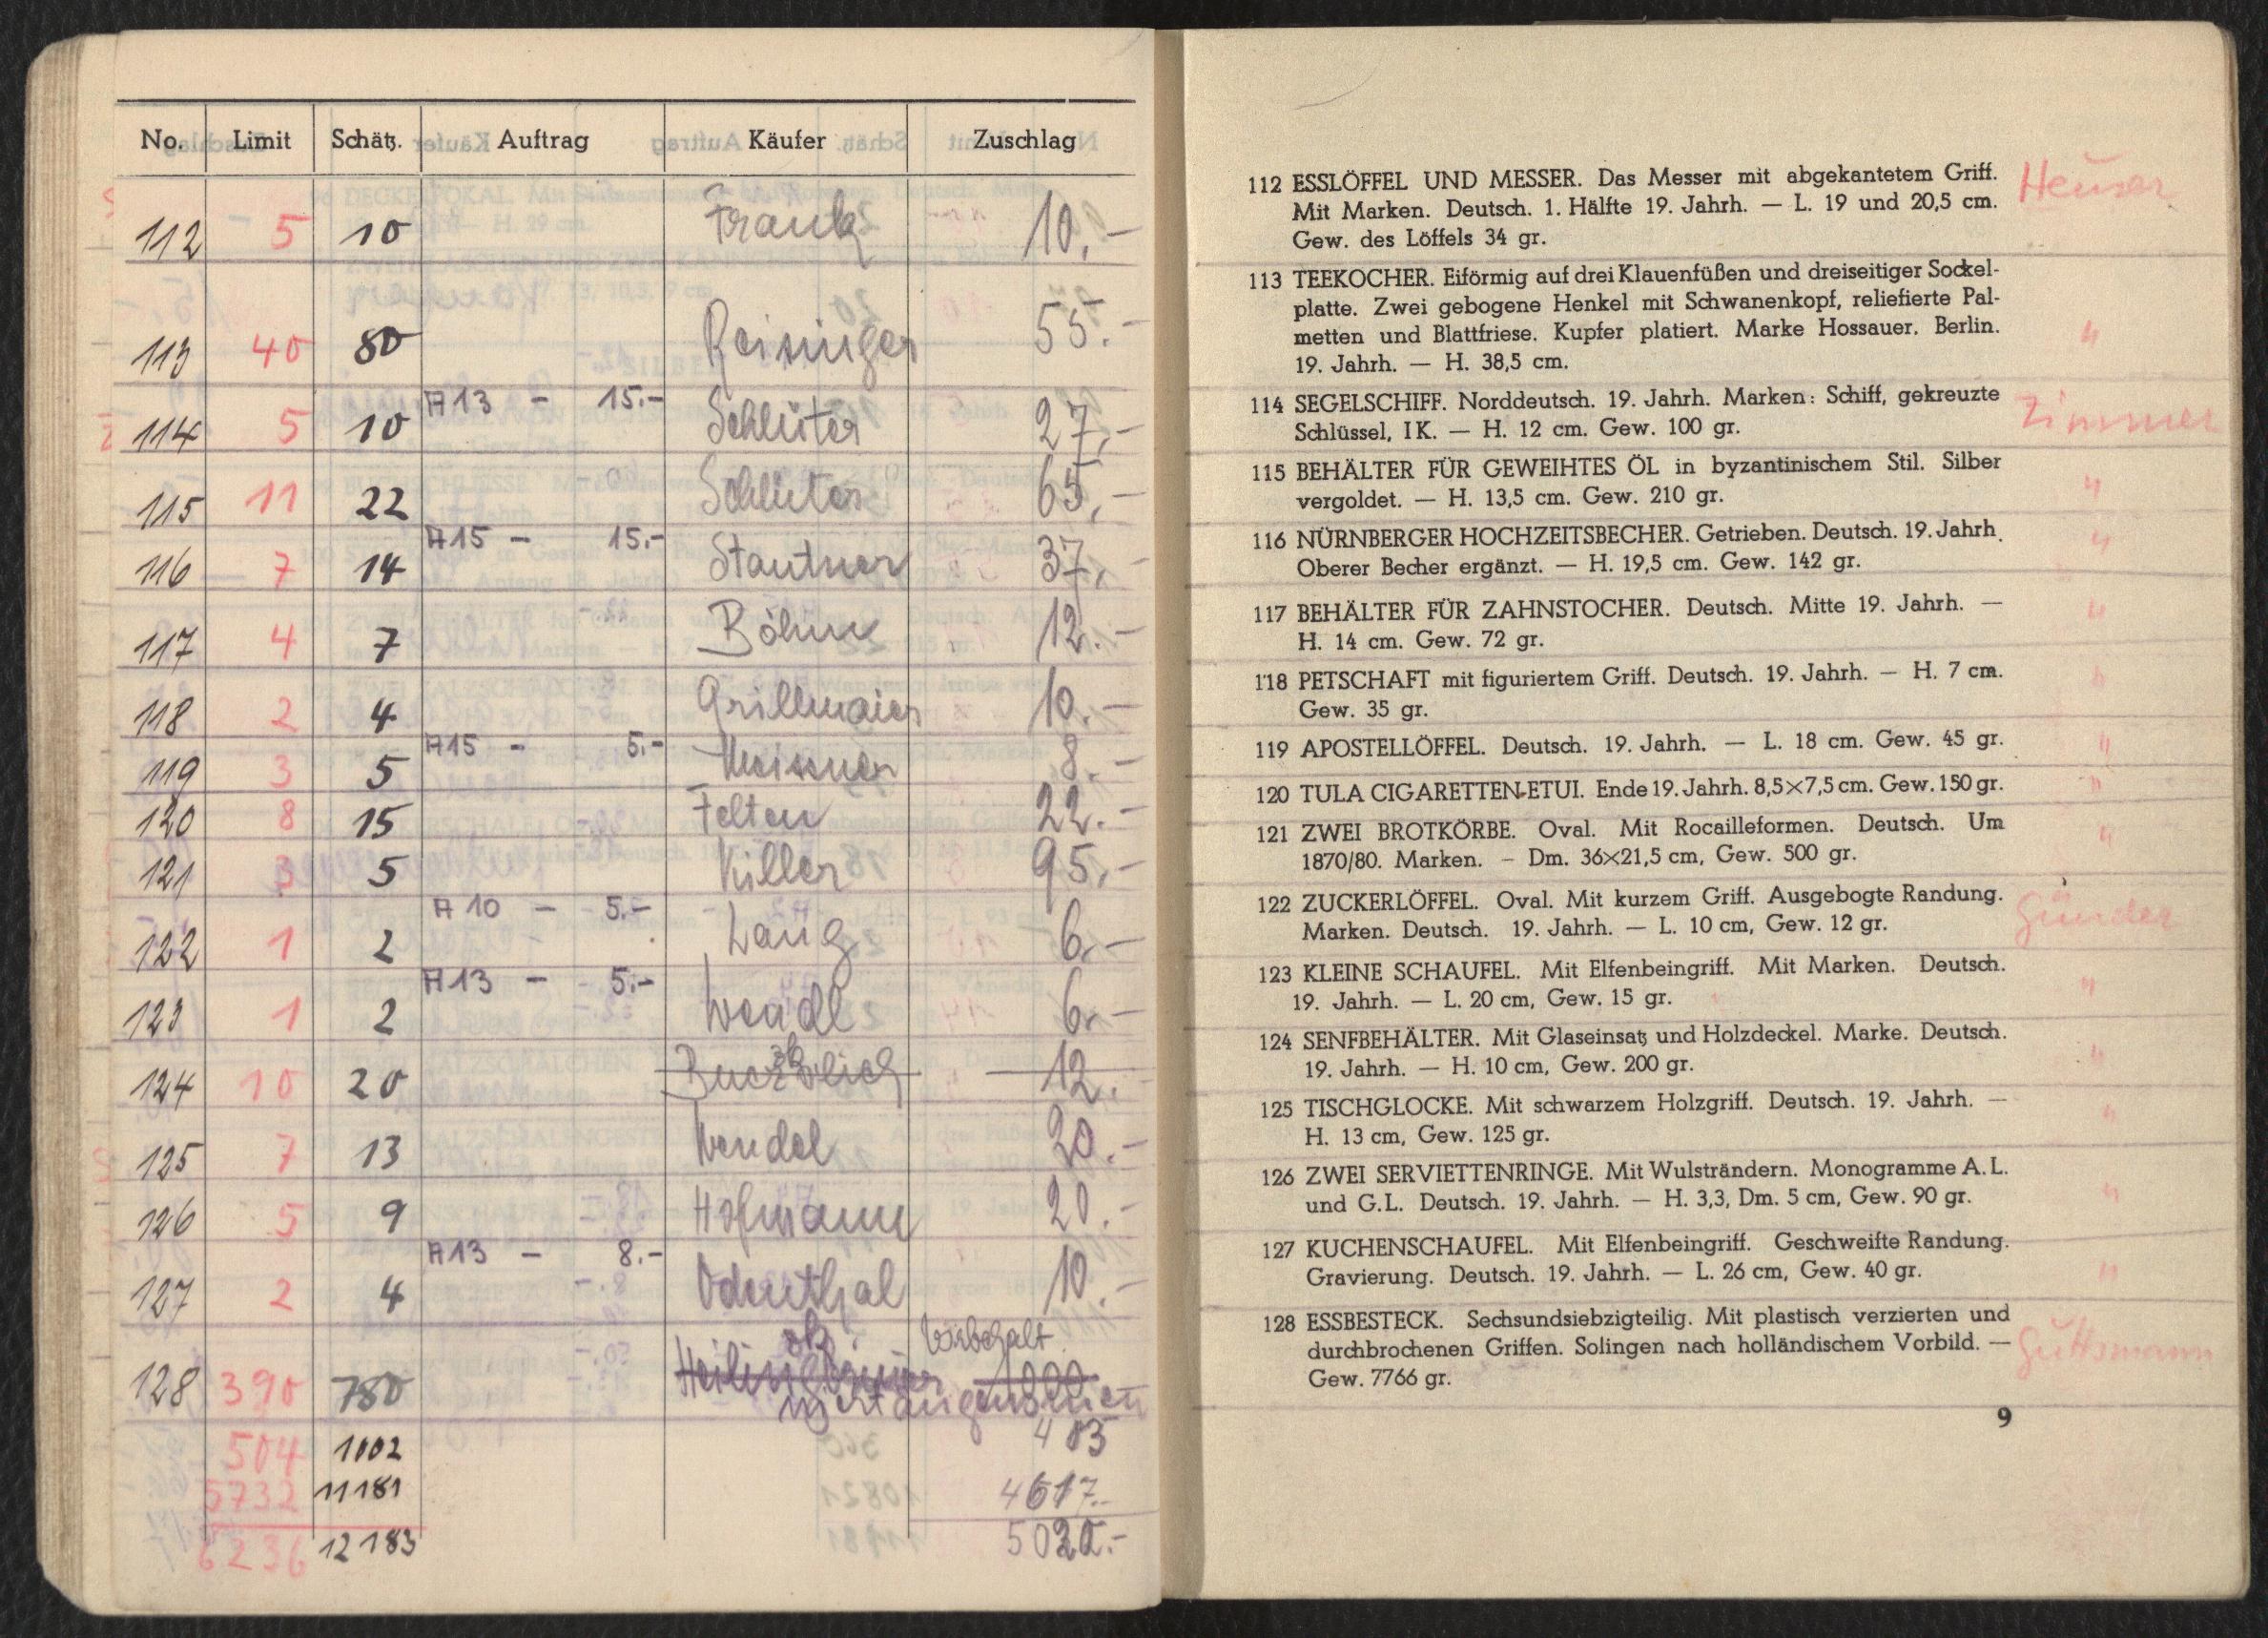 No. Limit Schätz. Auftrag Käufer Zuschlag
112 5 10 Frank 10.-
113 40 80 Reisinger 55.-
A13 - 15.-
114 5 10 Schlüter 27.-
115 11 22 Schlüter 65.-
A15 - 15.-
116 7 14 Stautner 37.-
117 4 7 Böhm 12.-
118 2 4 Grillmaier 10.-
A15 - 5.-
119 3 5 Meissner 8.-
120 8 15 Felten 22.-
121 3 5 Killer 95.-
A10 - 5.-
122 1 2 Lang 6.-
A13 - 5.-
123 1 2 Wendl 6.-
124 10 20 12.-
125 7 13 Wendel 20.-
126 5 9 Hofmann 20.-
A13 - 8.-
127 2 4 Odenthal 10.-
Vorbehalt
128 390 780
504 1002 403
5732 11181 4617.-
6236 12183 5020.-
112 ESSLÖFFEL UND MESSER. Das Messer mit abgekantetem Griff. Heuser
Mit Marken. Deutsch. 1. Hälfte 19. Jahrh. — L. 19 und 20,5 cm.
Gew. des Löffels 34 gr.
113 TEEKOCHER. Eiförmig auf drei Klauenfüßen und dreiseitiger Sockel-
platte. Zwei gebogene Henkel mit Schwanenkopf, reliefierte Pal-
metten und Blattfriese. Kupfer platiert. Marke Hossauer. Berlin. "
19. Jahrh. — H. 38,5 cm.
114 SEGELSCHIFF. Norddeutsch. 19. Jahrh. Marken: Schiff, gekreuzte Zimmer
Schlüssel, IK. — H. 12 cm. Gew. 100 gr.
115 BEHÄLTER FÜR GEWEIHTES ÖL in byzantinischem Stil. Silber "
vergoldet. — H. 13,5 cm. Gew. 210 gr.
116 NÜRNBERGER HOCHZEITSBECHER. Getrieben. Deutsch. 19. Jahrh. "
Oberer Becher ergänzt. — H. 19,5 cm. Gew. 142 gr.
117 BEHÄLTER FÜR ZAHNSTOCHER. Deutsch. Mitte 19. Jahrh. — "
H. 14 cm. Gew. 72 gr.
118 PETSCHAFT mit figuriertem Griff. Deutsch. 19. Jahrh. — H. 7 cm. "
Gew. 35 gr.
119 APOSTELLÖFFEL. Deutsch. 19. Jahrh. — L. 18 cm. Gew. 45 gr. "
120 TULA CIGARETTEN-ETUI. Ende 19. Jahrh. 8,5×7,5 cm. Gew. 150 gr. "
121 ZWEI BROTKÖRBE. Oval. Mit Rocailleformen. Deutsch. Um "
1870/80. Marken. – Dm. 36×21,5 cm, Gew. 500 gr.
122 ZUCKERLÖFFEL. Oval. Mit kurzem Griff. Ausgebogte Randung. Günder
Marken. Deutsch. 19. Jahrh. — L. 10 cm, Gew. 12 gr.
123 KLEINE SCHAUFEL. Mit Elfenbeingriff. Mit Marken. Deutsch. "
19. Jahrh. — L. 20 cm, Gew. 15 gr.
124 SENFBEHÄLTER. Mit Glaseinsatz und Holzdeckel. Marke. Deutsch. "
19. Jahrh. — H. 10 cm, Gew. 200 gr.
125 TISCHGLOCKE. Mit schwarzem Holzgriff. Deutsch. 19. Jahrh. — "
H. 13 cm, Gew. 125 gr.
126 ZWEI SERVIETTENRINGE. Mit Wulsträndern. Monogramme A. L. "
und G.L. Deutsch. 19. Jahrh. — H. 3,3, Dm. 5 cm, Gew. 90 gr.
127 KUCHENSCHAUFEL. Mit Elfenbeingriff. Geschweifte Randung. "
Gravierung. Deutsch. 19. Jahrh. — L. 26 cm, Gew. 40 gr.
128 ESSBESTECK. Sechsundsiebzigteilig. Mit plastisch verzierten und
durchbrochenen Griffen. Solingen nach holländischem Vorbild. — Guttsmann
Gew. 7766 gr.
9